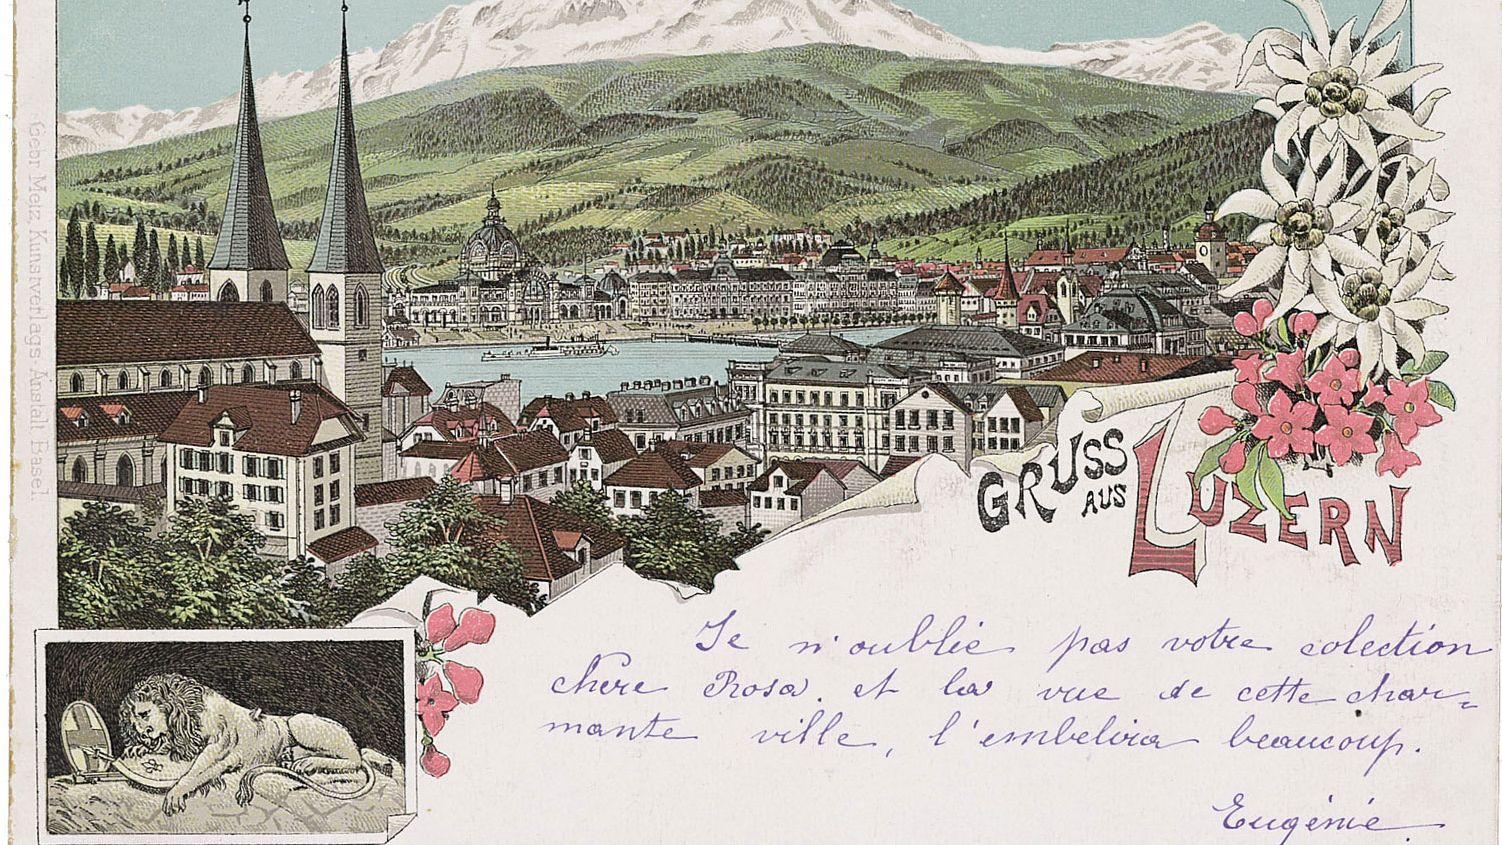 Gebr. Metz, Kunstverlags-Anstalt Basel.
GRUSS
AUS
LUZERN
Je n'oublie pas votre colection
chere Rosa. et la vue de cette char=
mante ville, l'embelira beaucoup.
Eugénie.